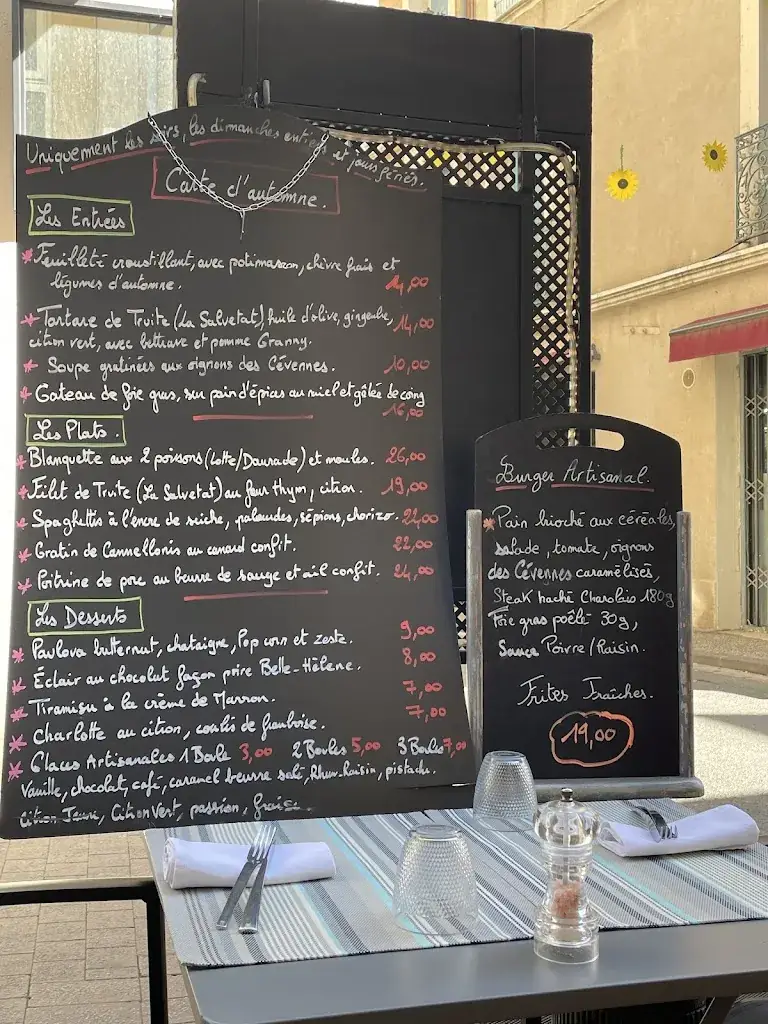 Uniquement les soirs, les dimanches entiers et jours fériés.
Carte d'automne.
Les Entrées
* Feuilleté croustillant, avec potimarron, chèvre frais et
légumes d'automne. 14,00
* Tartare de Truite (La Salvetat), huile d'olive, gingembre, 14,00
citron vert, avec bettrave et pomme Granny.
* Soupe gratinées aux oignons des Cévennes. 10,00
* Gateau de foie gras, sur pain d'épices au miel et gêlée de coing
16,00
Les Plats.
* Blanquette aux 2 poissons (Lotte/Daurade) et moules. 26,00
* Filet de Truite (La Salvetat) au four thym, citron. 19,00
* Spaghettis à l'encre de seiche, palourdes, sépions, chorizo. 24,00
* Gratin de Cannellonis au canard confit. 22,00
* Poitrine de porc au beurre de sauge et ail confit. 24,00
Les Desserts
* Pavlova butternut, chataigne, Pop corn et zeste. 9,00
* Éclair au chocolat façon poire Belle-Hélène. 8,00
* Tiramisu à la crème de Marron. 7,00
* Charlotte au citron, coulis de framboise. 7,00
* Glaces Artisanales 1 Boule 3,00 2 Boules 5,00 3 Boules 7,00
Vanille, chocolat, café, caramel beurre salé, Rhum-Raisin, pistache.
Citron Jaune, Citron Vert, passion, fraise.
Burger Artisanal.
* Pain brioché aux céréales,
salade, tomate, oignons
des Cévennes caramélisés,
Steak haché Charolais 180g
Foie gras poêlé 30g,
Sauce Poivre/Raisin.
Frites Fraîches.
19,00